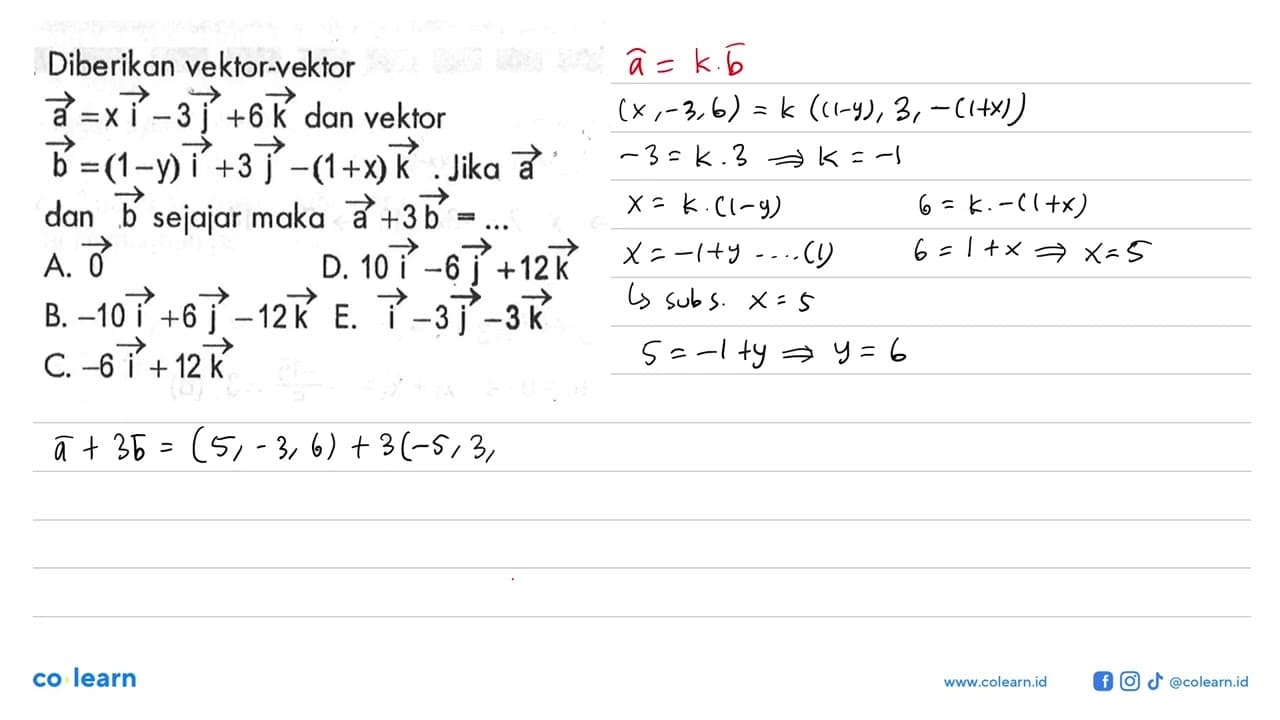 Diberikan vektor-vektor
a⃗ = x i⃗ − 3 j⃗ + 6 k⃗ dan vektor
b⃗ = (1−y) i⃗ + 3 j⃗ − (1+x) k⃗ . Jika a⃗
dan b⃗ sejajar maka a⃗ + 3 b⃗ = ...
A. 0⃗ D. 10 i⃗ − 6 j⃗ + 12 k⃗
B. −10 i⃗ + 6 j⃗ − 12 k⃗ E. i⃗ − 3 j⃗ − 3 k⃗
C. −6 i⃗ + 12 k⃗
a̅ = k . b̅
(x, -3, 6) = k ((1-y), 3, -(1+x))
-3 = k . 3 ⇒ k = -1
x = k . (1-y) 6 = k . -(1+x)
x = -1 + y .... (1) 6 = 1 + x ⇒ x = 5
↳ subs. x = 5
5 = -1 + y ⇒ y = 6
a̅ + 3b̅ = (5, -3, 6) + 3(-5, 3,
co learn
www.colearn.id
@colearn.id